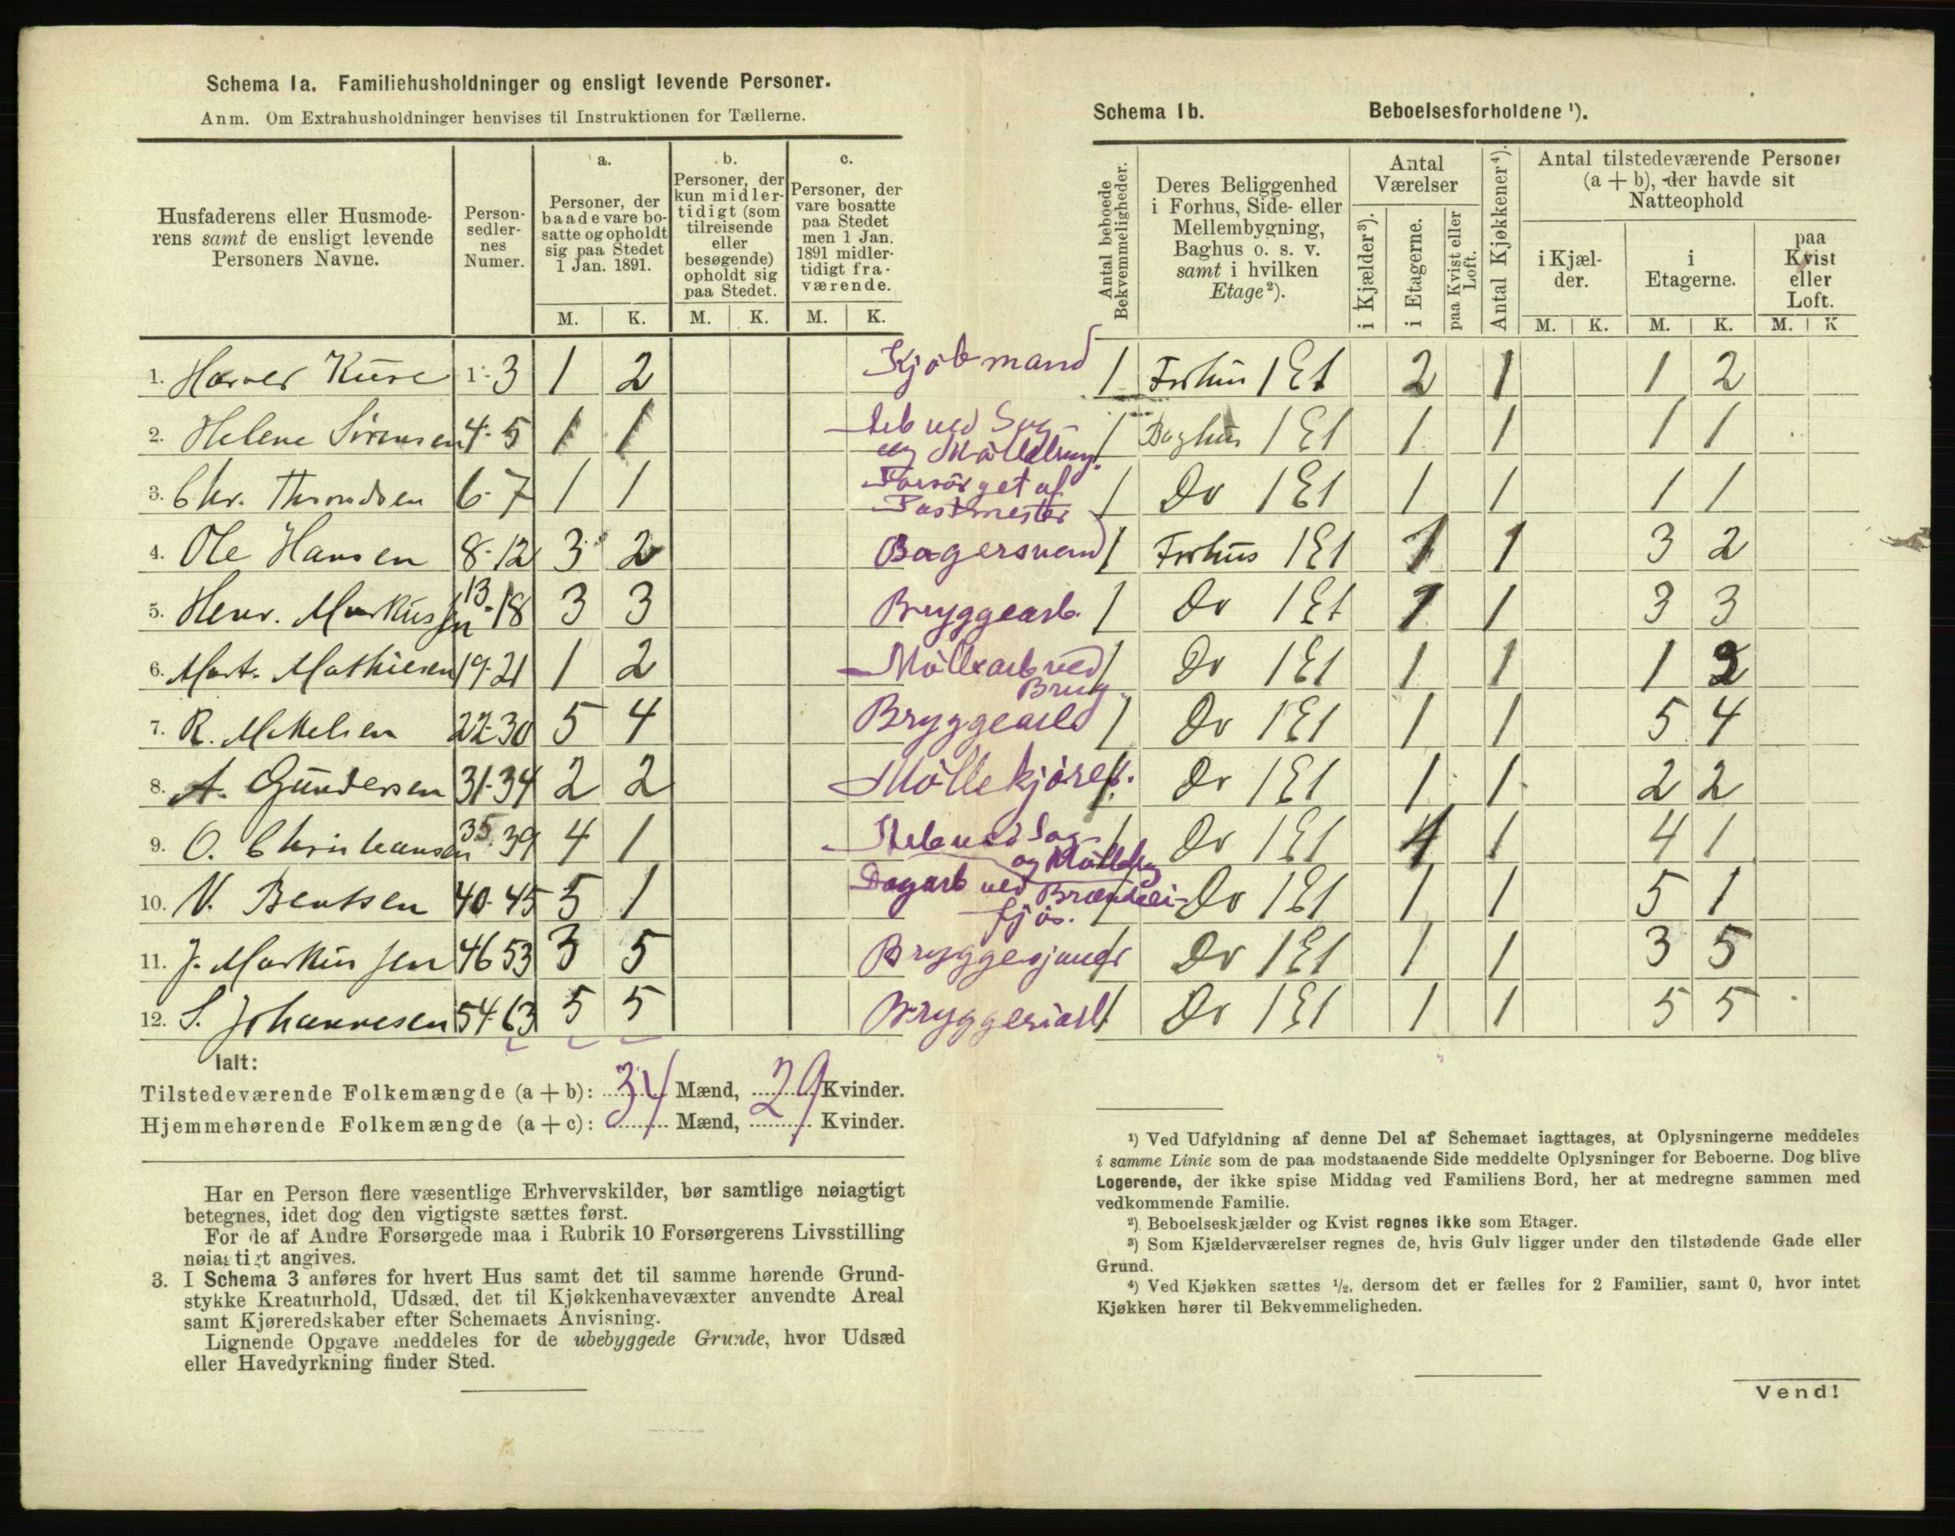 Schema 1a. Familiehusholdninger og ensligt levende Personer.
Anm. Om Extrahusholdninger henvises til Instruktionen for Tællerne.
Husfaderens eller Husmode-
rens samt de ensligt levende
Personers Navne.
Person-
sedler-
nes
Numer.
a.
Personer, der
baade vare bo-
satte og opholdt
sig paa Stedet
1 Jan. 1891.
b.
Personer, der
kun midler-
tidigt (som
tilreisende
eller
besøgende)
opholdt sig
paa Stedet.
c.
Personer, der
vare bosatte
paa Stedet
men 1 Jan.
1891 midler-
tidigt fra-
værende.
M. K. M. K. M. K.
1. Kure 1-3 1 2 Kjøbmand
2. Helene Sørensen 4-5 1 1 Arb ved Sag
og Mølle
3. Chr. Throndsen 6-7 1 1 Forsørget af
Postmester
4. Ole Hansen 8-12 3 2 Bagersvend
5. Henr. Markussen 13-18 3 3 Bryggearb
6. Mart. Mathiesen 19-21 1 2 Møllearb ved
Brug
7. R. Mikelsen 22-30 5 4 Bryggearb
8. A. Gundersen 31-34 2 2 Møllekjører
9. O. Christiansen 35-39 4 1 Arb ved Sag
og
10. V. Bentsen 40-45 5 1 Dagarb ved
11. J. Markussen 46 53 3 5
12. S. Johannesen 54-63 5 5
Ialt:
Tilstedeværende Folkemængde (a + b): 34 Mænd, 29 Kvinder.
Hjemmehørende Folkemængde (a + c): Mænd, Kvinder.
Har en Person flere væsentlige Erhvervskilder, bør samtlige nøiagtigt
betegnes, idet dog den vigtigste sættes først.
For de af Andre Forsørgede maa i Rubrik 10 Forsørgerens Livsstilling
nøiagtigt angives.
3. I Schema 3 anføres for hvert Hus samt det til samme hørende Grund-
stykke Kreaturhold, Udsæd, det til Kjøkkenhavevæxter anvendte Areal
samt Kjøreredskaber efter Schemaets Anvisning.
Lignende Opgave meddeles for de ubebyggede Grunde, hvor Udsæd
eller Havedyrkning finder Sted.
Schema 1b. Beboelsesforholdene ¹).
Antal beboede
Bekvemmeligheder.
Deres Beliggenhed
i Forhus, Side- eller
Mellembygning,
Baghus o. s. v.
samt i hvilken
Etage²).
Antal
Værelser
i Kjælder³).
i Etagerne.
paa Kvist eller
Loft.
Antal Kjøkkener⁴).
Antal tilstedeværende Personer
(a + b), der havde sit
Natteophold
i Kjæl-
der.
i
Etagerne.
paa
Kvist
eller
Loft.
M. K. M. K. M. K
1 Forhus 1 Et 2 1 1 2
1 Baghus 1 Et 1 1 1 1
1 Do 1 Et 1 1 1 1
1 Forhus 1 Et 1 1 3 2
1 Do 1 Et 1 1 3 3
1 Do 1 Et 1 1 1 2
1 Do 1 Et 1 1 5 4
1 Do 1 Et 1 1 2 2
1 Do 1 Et 1 4 1
1 Do 1 Et 1 1 5 1
1 Do 1 Et 1 1 3 5
1 Do 1 Et 1 1 5 5
¹) Ved Udfyldning af denne Del af Schemaet iagttages, at Oplysningerne meddeles
i samme Linie som de paa modstaaende Side meddelte Oplysninger for Beboerne. Dog blive
Logerende, der ikke spise Middag ved Familiens Bord, her at medregne sammen med
vedkommende Familie.
²) Beboelseskjælder og Kvist regnes ikke som Etager.
³) Som Kjælderværelser regnes de, hvis Gulv ligger under den tilstødende Gade eller
Grund.
⁴) Ved Kjøkken sættes ½, dersom det er fælles for 2 Familier, samt 0, hvor intet
Kjøkken hører til Bekvemmeligheden.
Vend!